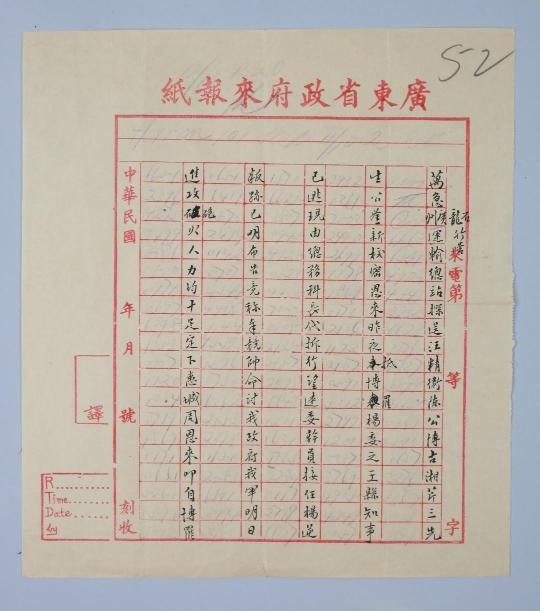 52
廣東省政府來報紙
來電第 等 字
萬急石龍行營廣州運輸總站探送汪精衛陳公博古湘芹三先
生公鑒新校密恩來昨夜抵博羅楊委之王縣知事
已逃現由總務科長代拆行望速委幹員接任楊逆
叛跡已明布告竟稱奉競帥命討我政府我軍明日
進攻砲火人力均十足定下惠城周恩來叩自博羅
中華民國 年 月 號 刻收
譯
R.......
Time.......
Date.......
by